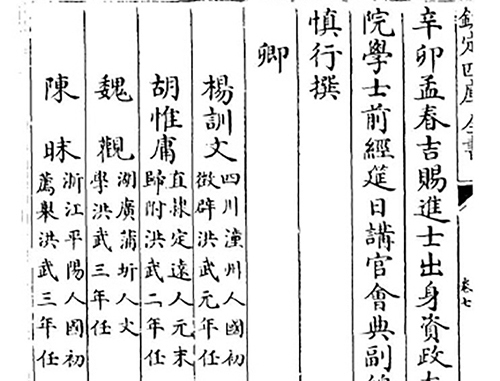 欽定四庫全書
卷七
辛卯孟春吉賜進士出身資政
院學士前經筵日講官會典副
慎行撰
卿
楊訓文
四川潼州人國初
徵辟洪武元年任
胡惟庸
直隸定遠人元末
歸附洪武二年任
魏觀
湖廣蒲圻人文
學洪武三年任
陳昧
浙江平陽人國初
薦舉洪武三年任